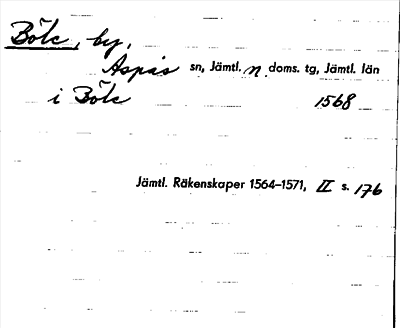 Böle, by,
Aspås sn, Jämtl. n. doms. tg, Jämtl. län
i Böle 1568
Jämtl. Räkenskaper 1564–1571, II s. 176